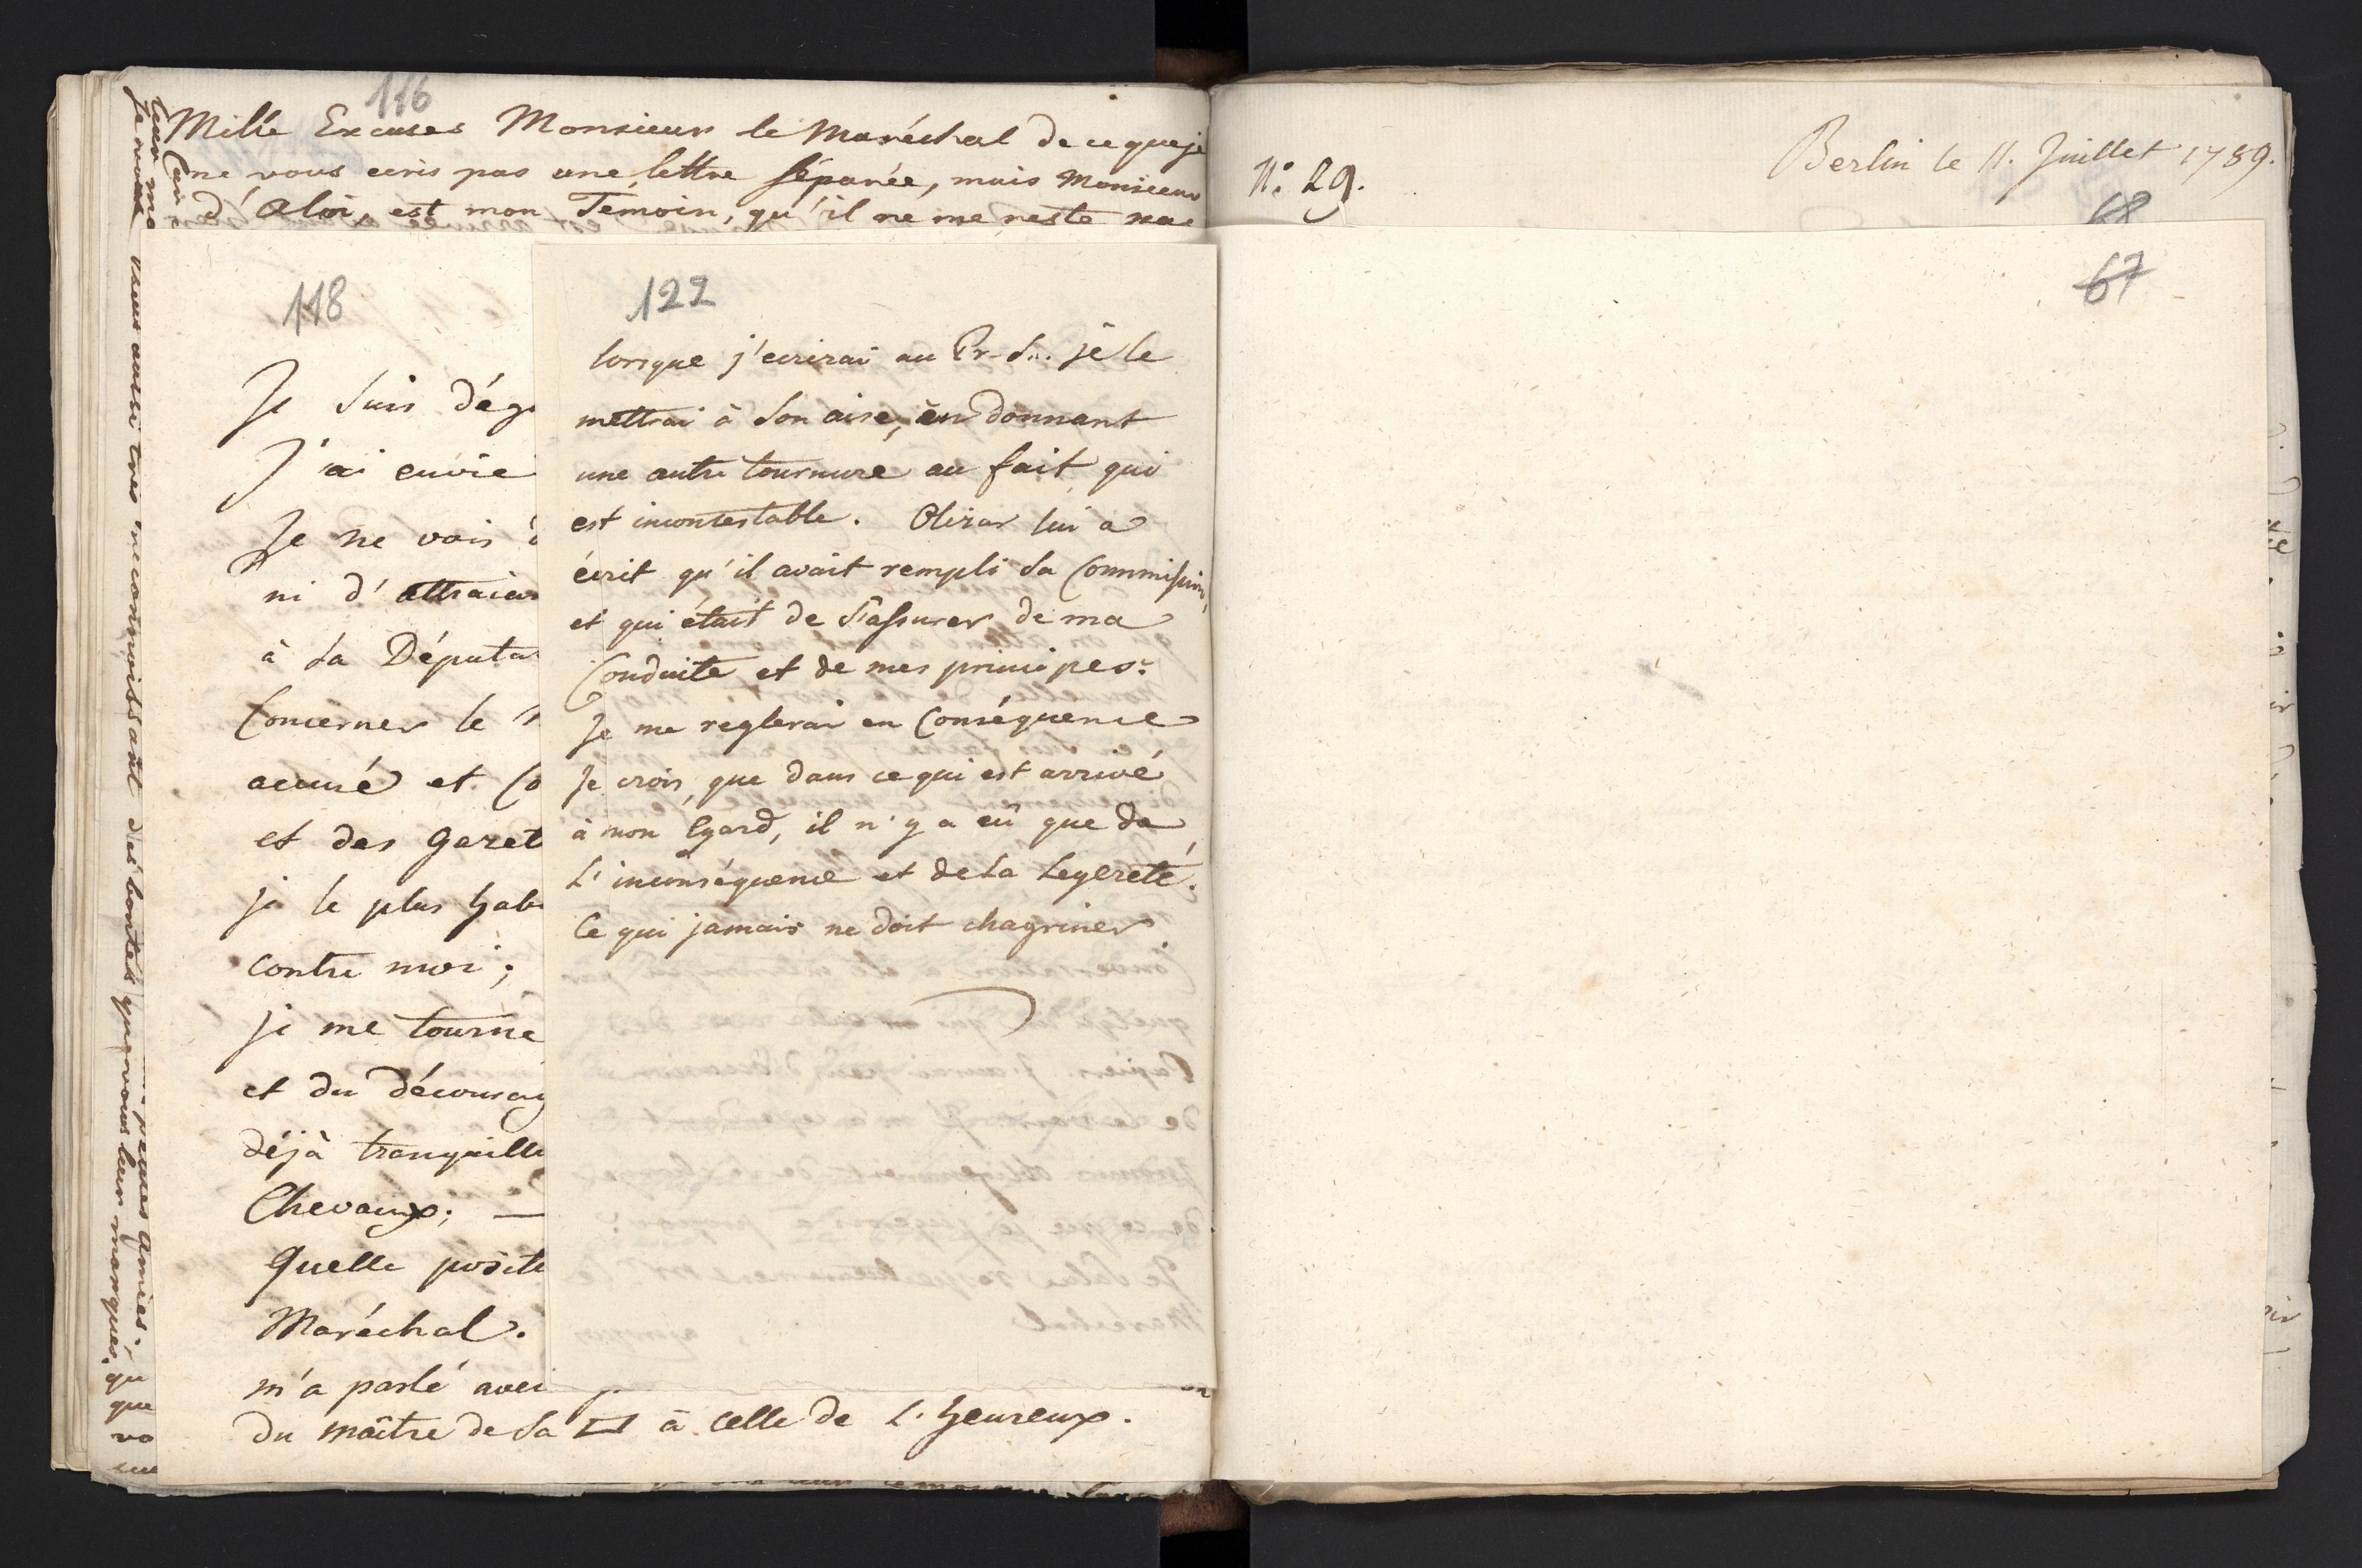 116
Mille Excuses Monsieur le Maréchal de ce que je
ne vous ecris pas une lettre séparée, mais Monsieur
d'Aloi, est mon Temoin, qu'il ne me reste
vous aussi tres meconnoissant des bontés que vous leur marques.
118
Je suis dég
J'ai envie
Je ne vois
ni d'attraie
à sa Députa
Concerner le
accusé et Co
et des Gazet
je le plus hab
contre moi;
je me tourne
et du découra
déjà tranquille
Chevaux; —
Quelle posit
Maréchal.
m'a parlé avec
du maître de la à celle de L'heureux.
122
lorsque j'ecrirai au Pr. S... je le
mettrai à son aise, en donnant
une autre tournure au fait qui
est incontestable. Olizar lui a
écrit qu'il avait rempli sa Commission,
et qui était de s'assurer de ma
Conduite et de mes principes.
Je me reglerai en Conséquence
Je crois, que dans ce qui est arrivé
à mon Egard, il n'y a eû que de
L'inconséquence et de la Legereté.
Ce qui jamais ne doit chagriner
N: 29.
Berlin le 11. Juillet 1789.
68
67